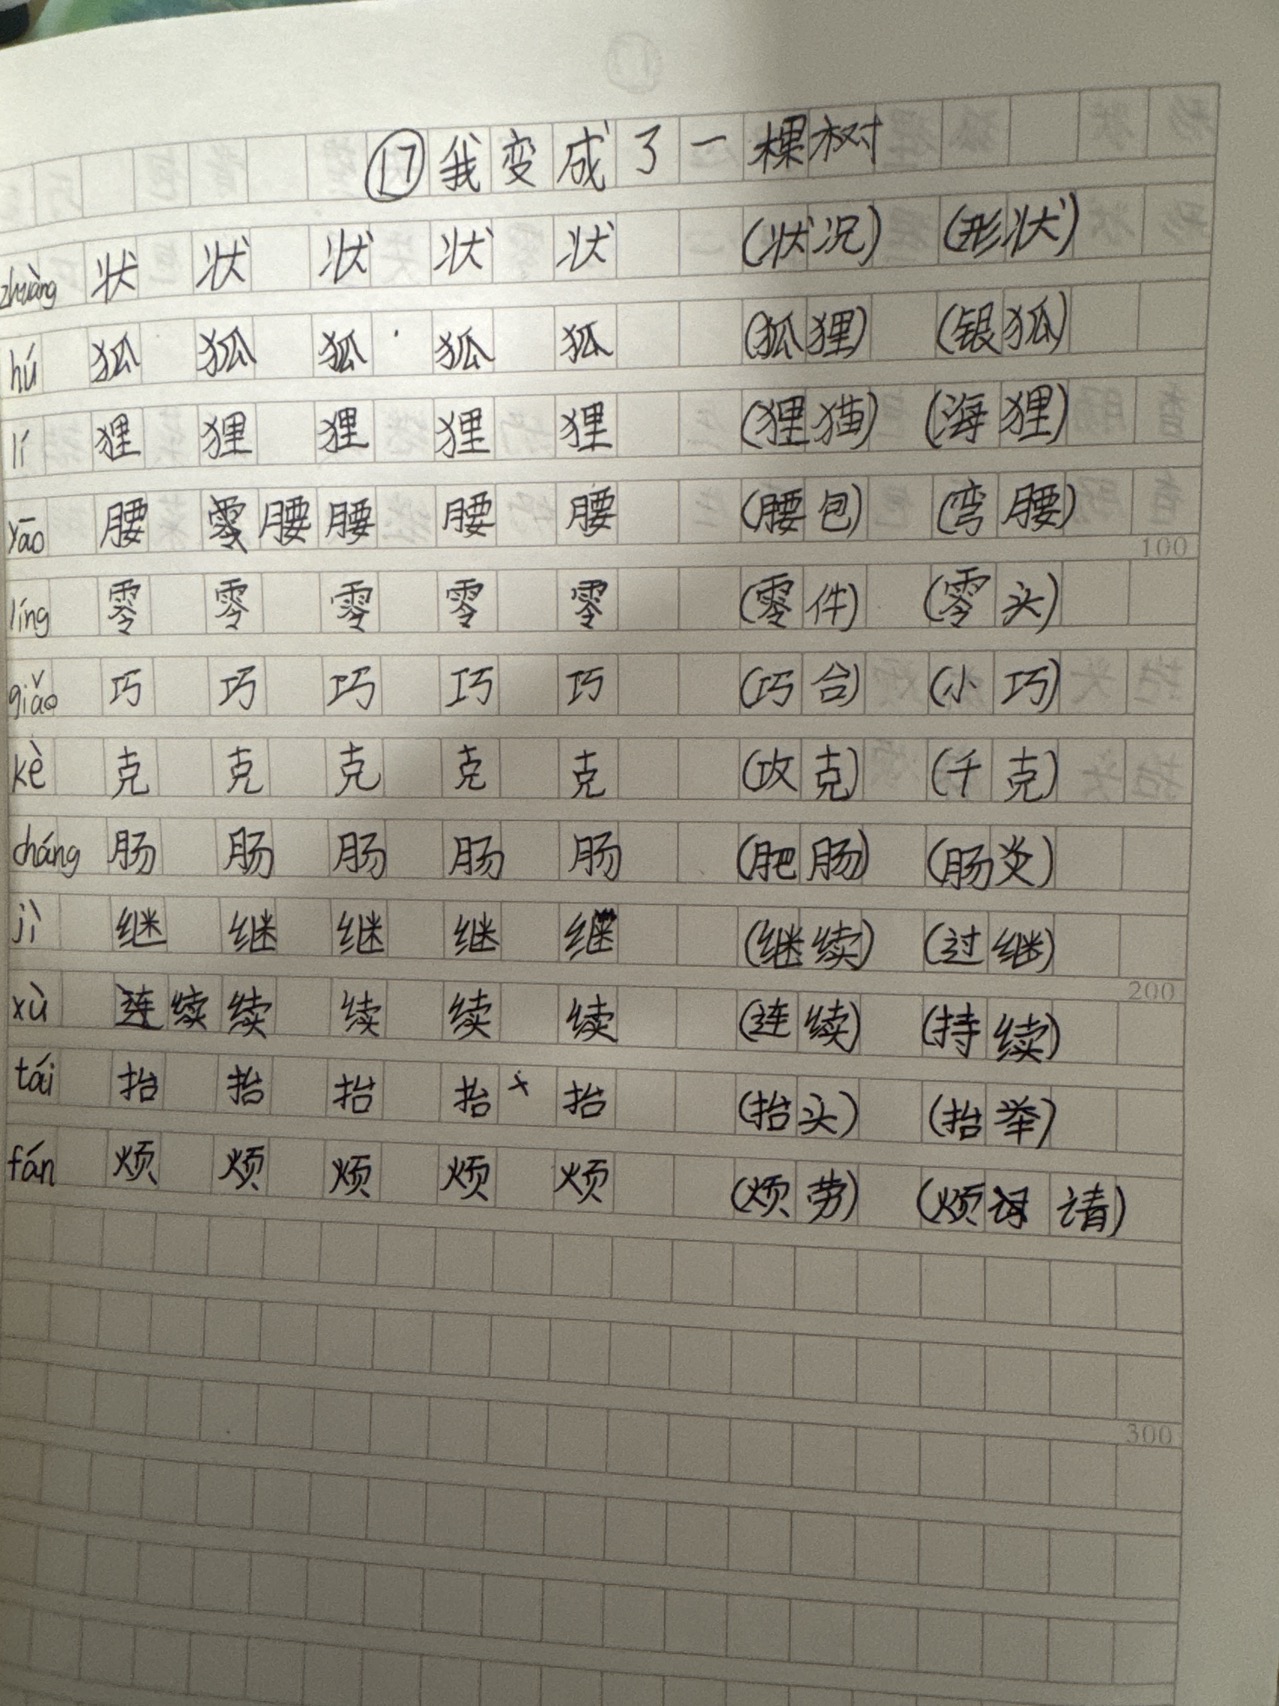 ⑰我变成了一棵树
zhuàng 状 状 状 状 状 (状况) (形状)
hú 狐 狐 狐 狐 狐 (狐狸) (银狐)
lí 狸 狸 狸 狸 狸 (狸猫) (海狸)
yāo 腰 腰 腰 腰 腰 (腰包) (弯腰)
100
líng 零 零 零 零 零 (零件) (零头)
qiǎo 巧 巧 巧 巧 巧 (巧合) (小巧)
kè 克 克 克 克 克 (攻克) (千克)
cháng 肠 肠 肠 肠 肠 (肥肠) (肠炎)
jì 继 继 继 继 继 (继续) (过继)
200
xù 续 续 续 续 续 (连续) (持续)
tái 抬 抬 抬 抬 抬 (抬头) (抬举)
fán 烦 烦 烦 烦 烦 (烦劳) (烦请)
300